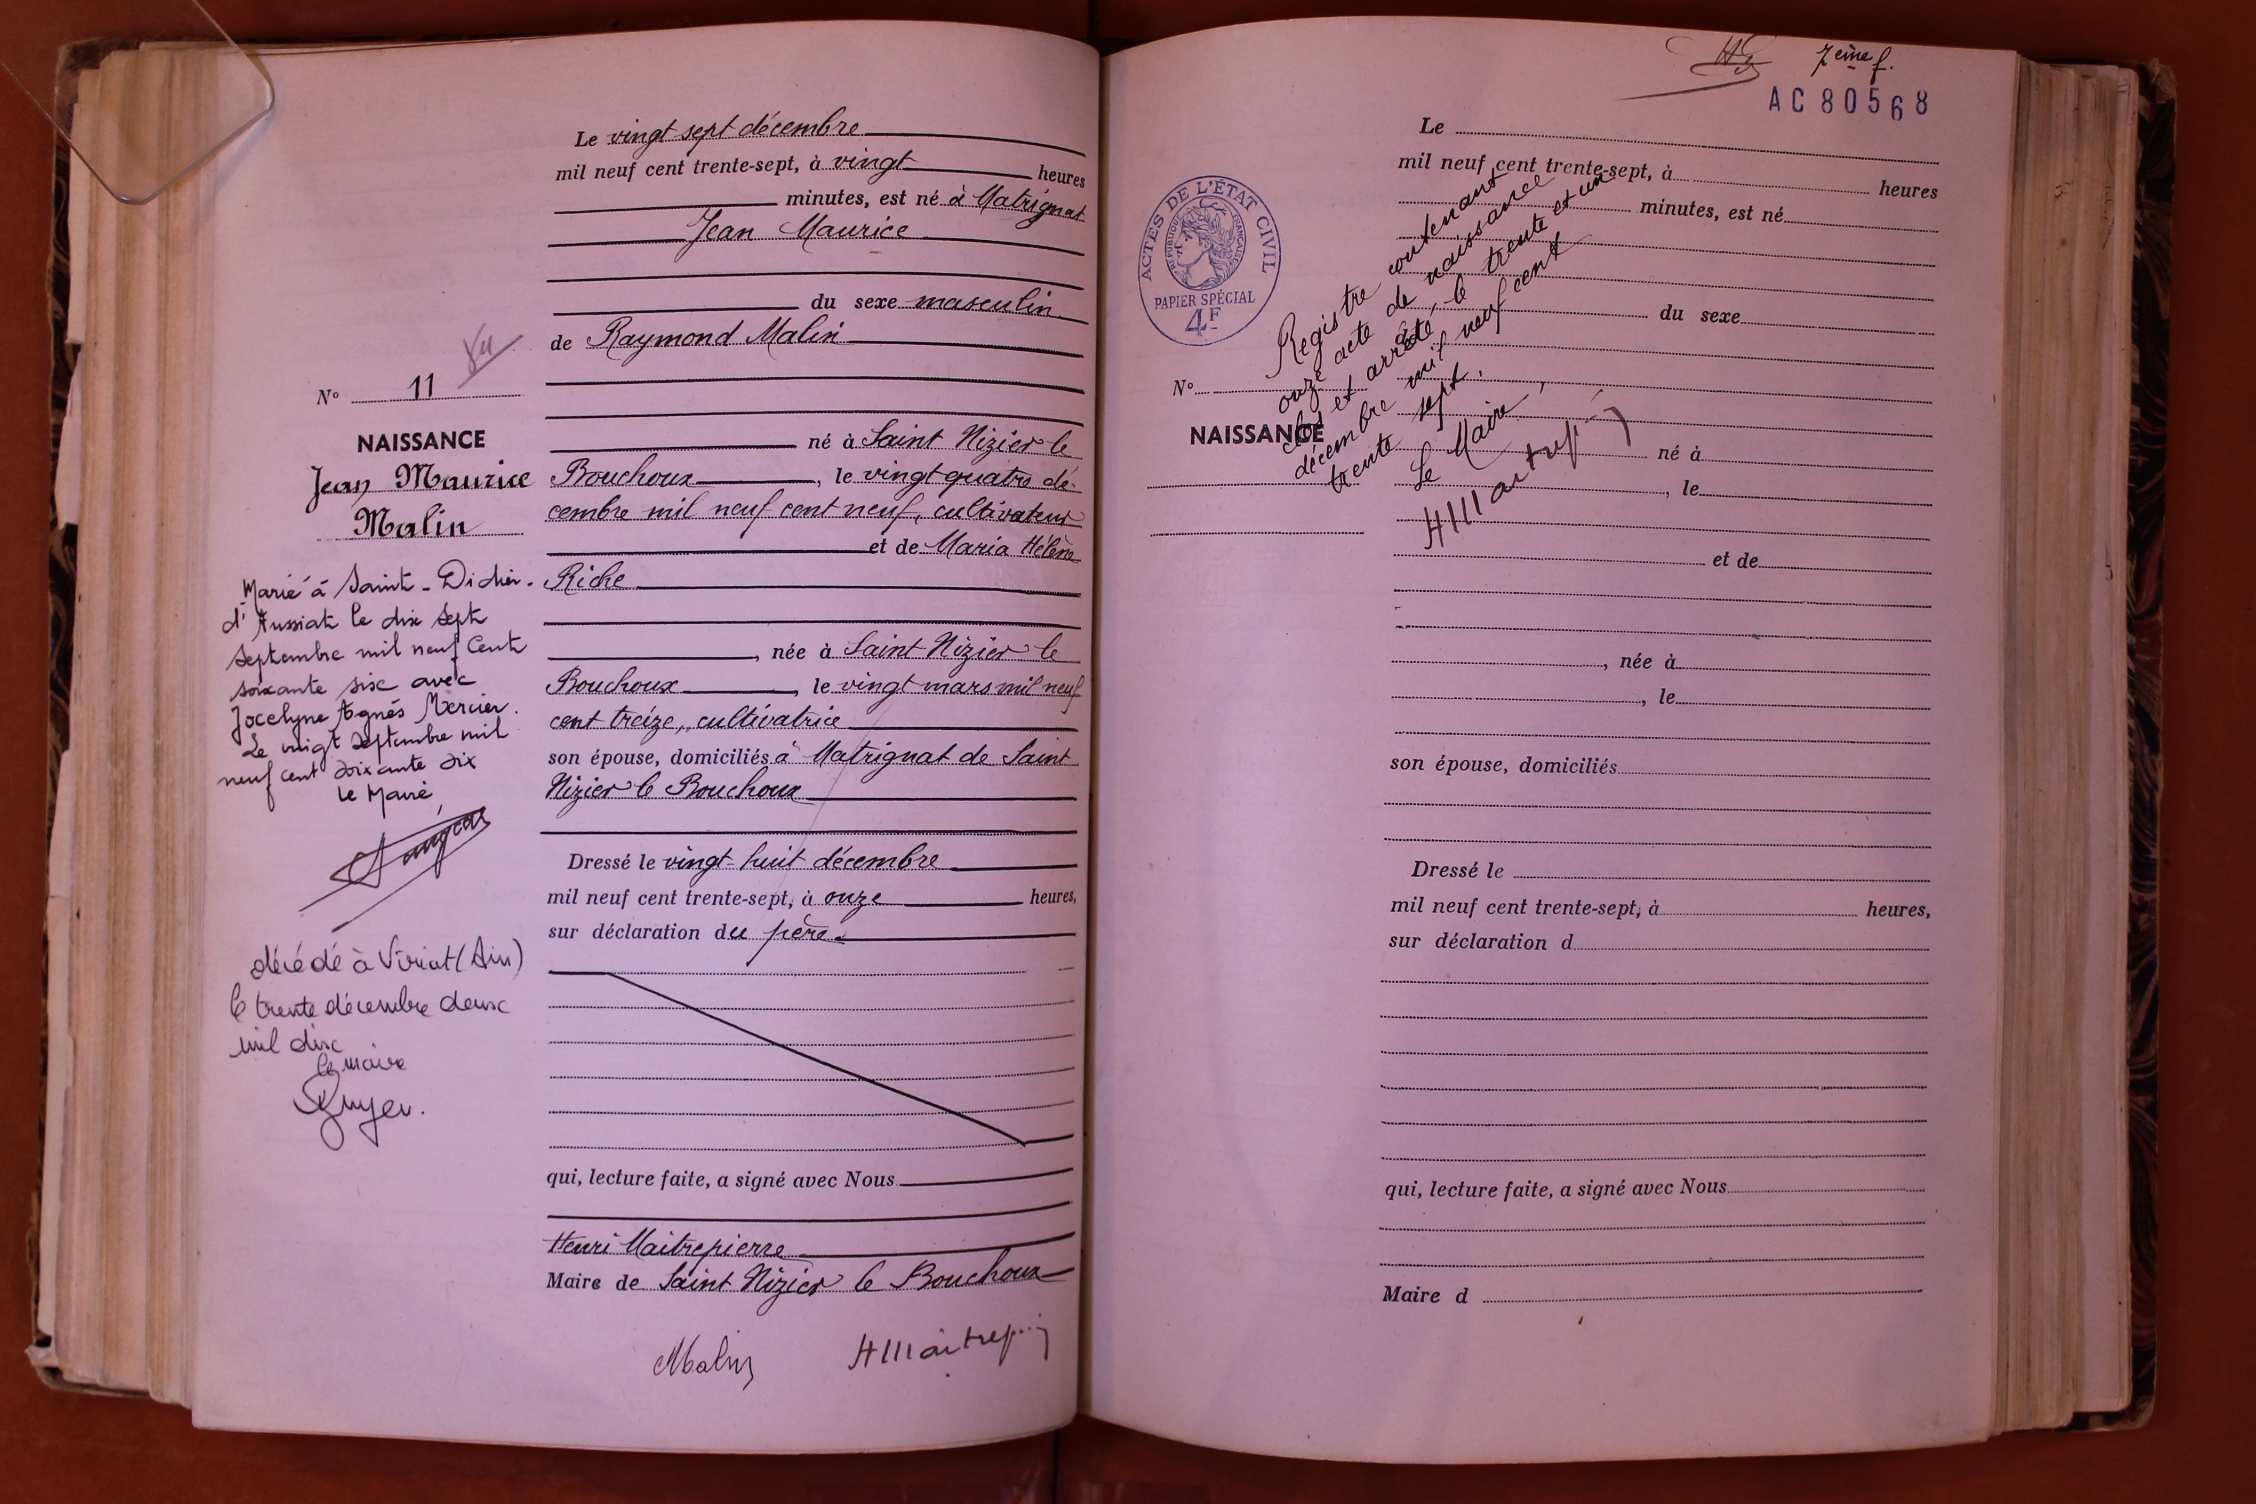 Le vingt sept décembre
mil neuf cent trente-sept, à vingt heures
minutes, est né à Matrignat
Jean Maurice
du sexe masculin
de Raymond Malin
N° 11
NAISSANCE
Jean Maurice
Malin
né à Saint Nizier le
Bouchoux, le vingt quatre dé-
cembre mil neuf cent neuf, cultivateur
et de Maria Hélène
Riche
née à Saint Nizier le
Bouchoux, le vingt mars mil neuf
cent treize, cultivatrice
son épouse, domiciliés à Matrignat de Saint
Nizier le Bouchoux
Dressé le vingt-huit décembre
mil neuf cent trente-sept, à onze heures,
sur déclaration du père.
qui, lecture faite, a signé avec Nous
Henri Maitrepierre
Maire de Saint Nizier le Bouchoux
Malin
HMaitrep
Marié à Saint-Didier-
d'Aussiat le dix sept
septembre mil neuf cent
soixante six avec
Jocelyne Agnés Mercier.
Le vingt septembre mil
neuf cent soixante six
Le Maire
décédé à Viriat (Ain)
le trente décembre deux
mil dix
le maire
7ème f.
AC 80568
Le
mil neuf cent trente-sept, à heures
minutes, est né
ACTES DE L'ÉTAT CIVIL
RÉPUBLIQUE FRANÇAISE
PAPIER SPÉCIAL
4F
du sexe
N°
NAISSANCE
Registre contenant
onze acte de naissance
clos et arrêté, le trente et un
décembre mil neuf cent
trente sept.
Le Maire,
HMaitrep
né à
, le
et de
, née à
, le
son épouse, domiciliés
Dressé le
mil neuf cent trente-sept, à heures,
sur déclaration d
qui, lecture faite, a signé avec Nous
Maire d